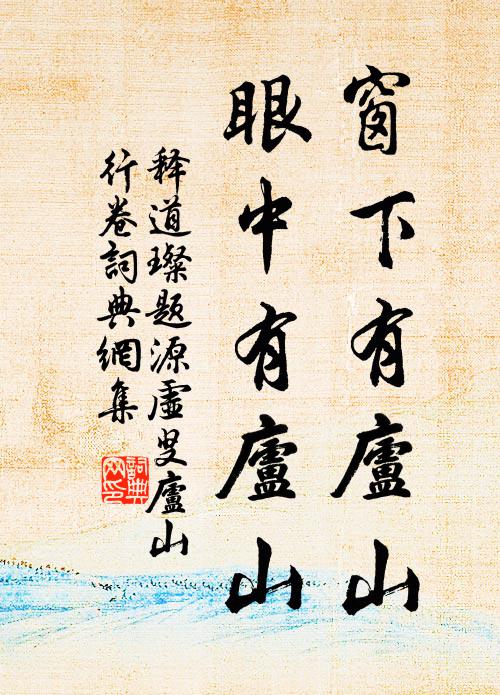 窗下有廬山
眼中有廬山
释道璨题源虚叟廬山
行卷詞典網集
詞典網印